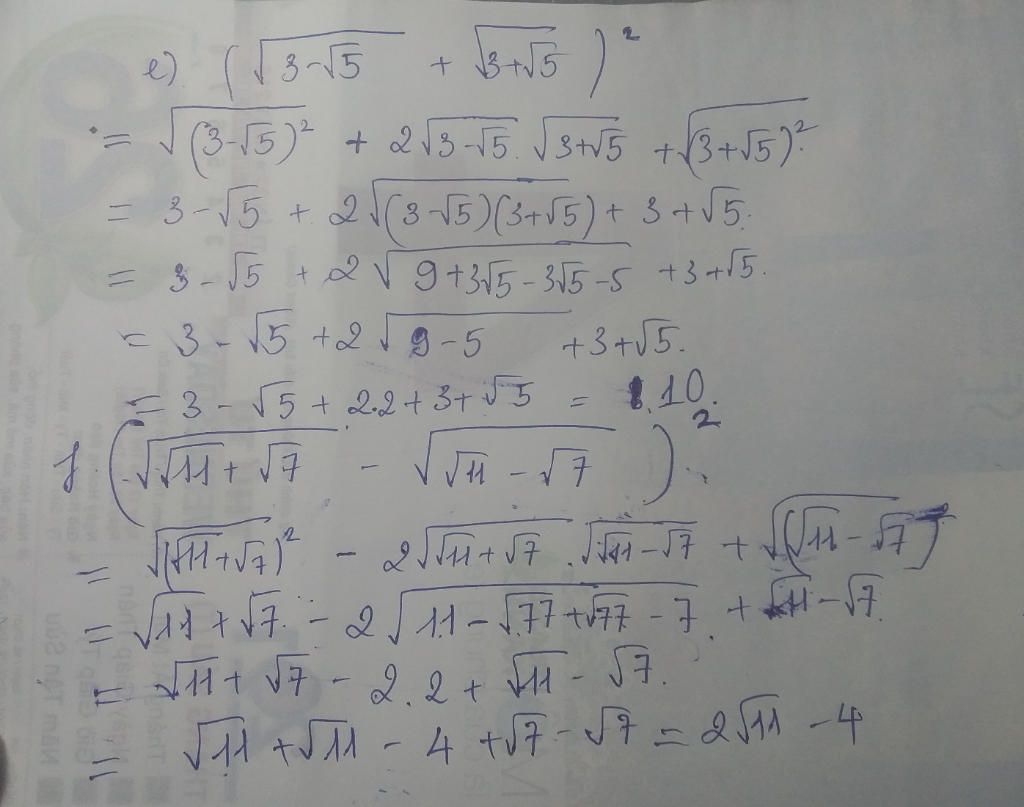 e) (√(3-√5) + √(3+√5))²
= √(3-√5)² + 2√(3-√5) . √(3+√5) + √(3+√5)².
= 3-√5 + 2√((3-√5)(3+√5)) + 3+√5.
= 3-√5 + 2√(9+3√5-3√5-5) +3+√5.
= 3-√5 +2√(9-5) +3+√5.
= 3-√5 + 2.2+3+√5 = 10.
f. (√(√11+√7) - √(√11-√7))²
= √(√11+√7)² - 2√(√11+√7) . √(√11-√7) + √(√11-√7)²
= √11+√7 - 2√(11-√77+√77-7) + √11-√7
= √11+√7 - 2.2 + √11-√7.
= √11+√11 - 4 +√7-√7 = 2√11 - 4